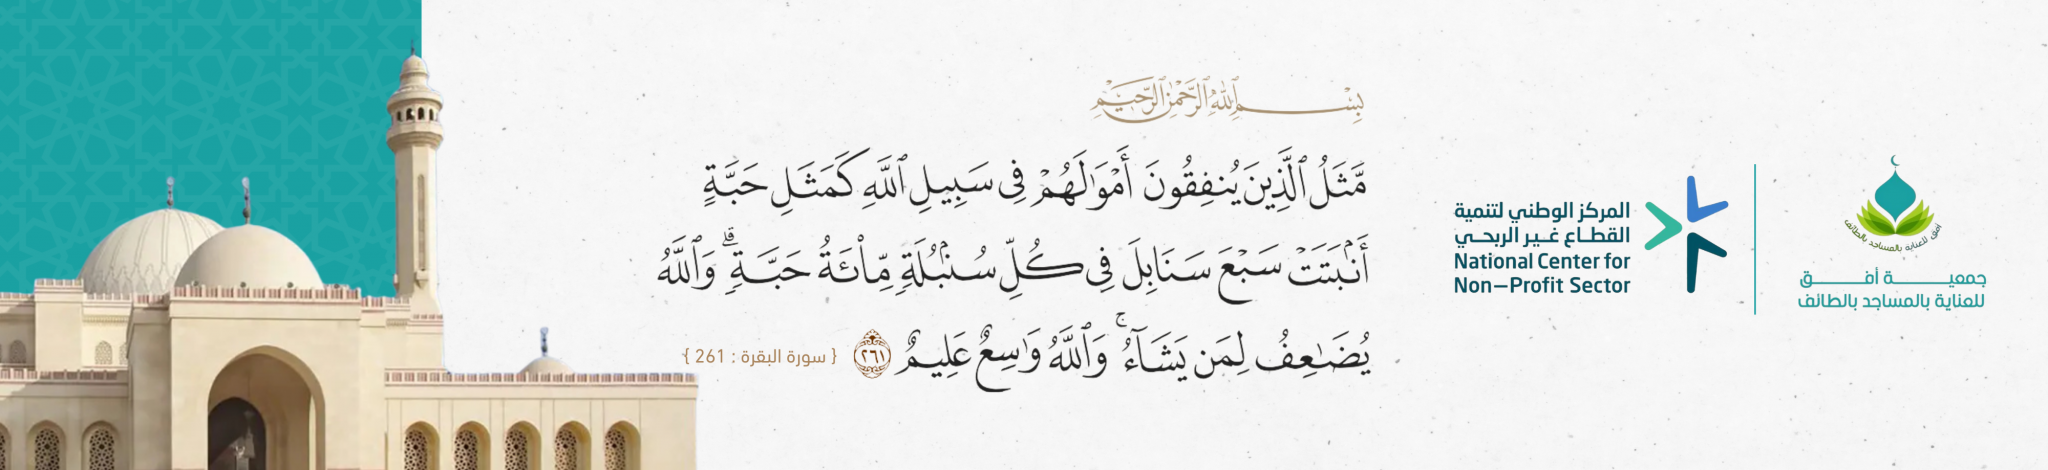 بِسْمِ ٱللَّهِ ٱلرَّحْمَٰنِ ٱلرَّحِيمِ
مَّثَلُ ٱلَّذِينَ يُنفِقُونَ أَمْوَٰلَهُمْ فِى سَبِيلِ ٱللَّهِ كَمَثَلِ حَبَّةٍ
أَنۢبَتَتْ سَبْعَ سَنَابِلَ فِى كُلِّ سُنۢبُلَةٍ مِّا۟ئَةُ حَبَّةٍ ۗ وَٱللَّهُ
يُضَٰعِفُ لِمَن يَشَآءُ ۚ وَٱللَّهُ وَٰسِعٌ عَلِيمٌ ٢٦١ { سورة البقرة : 261 }
المركز الوطني لتنمية
القطاع غير الربحي
National Center for
Non–Profit Sector
أفق للعناية بالمساجد بالطائف
جمعية أفق
للعناية بالمساجد بالطائف